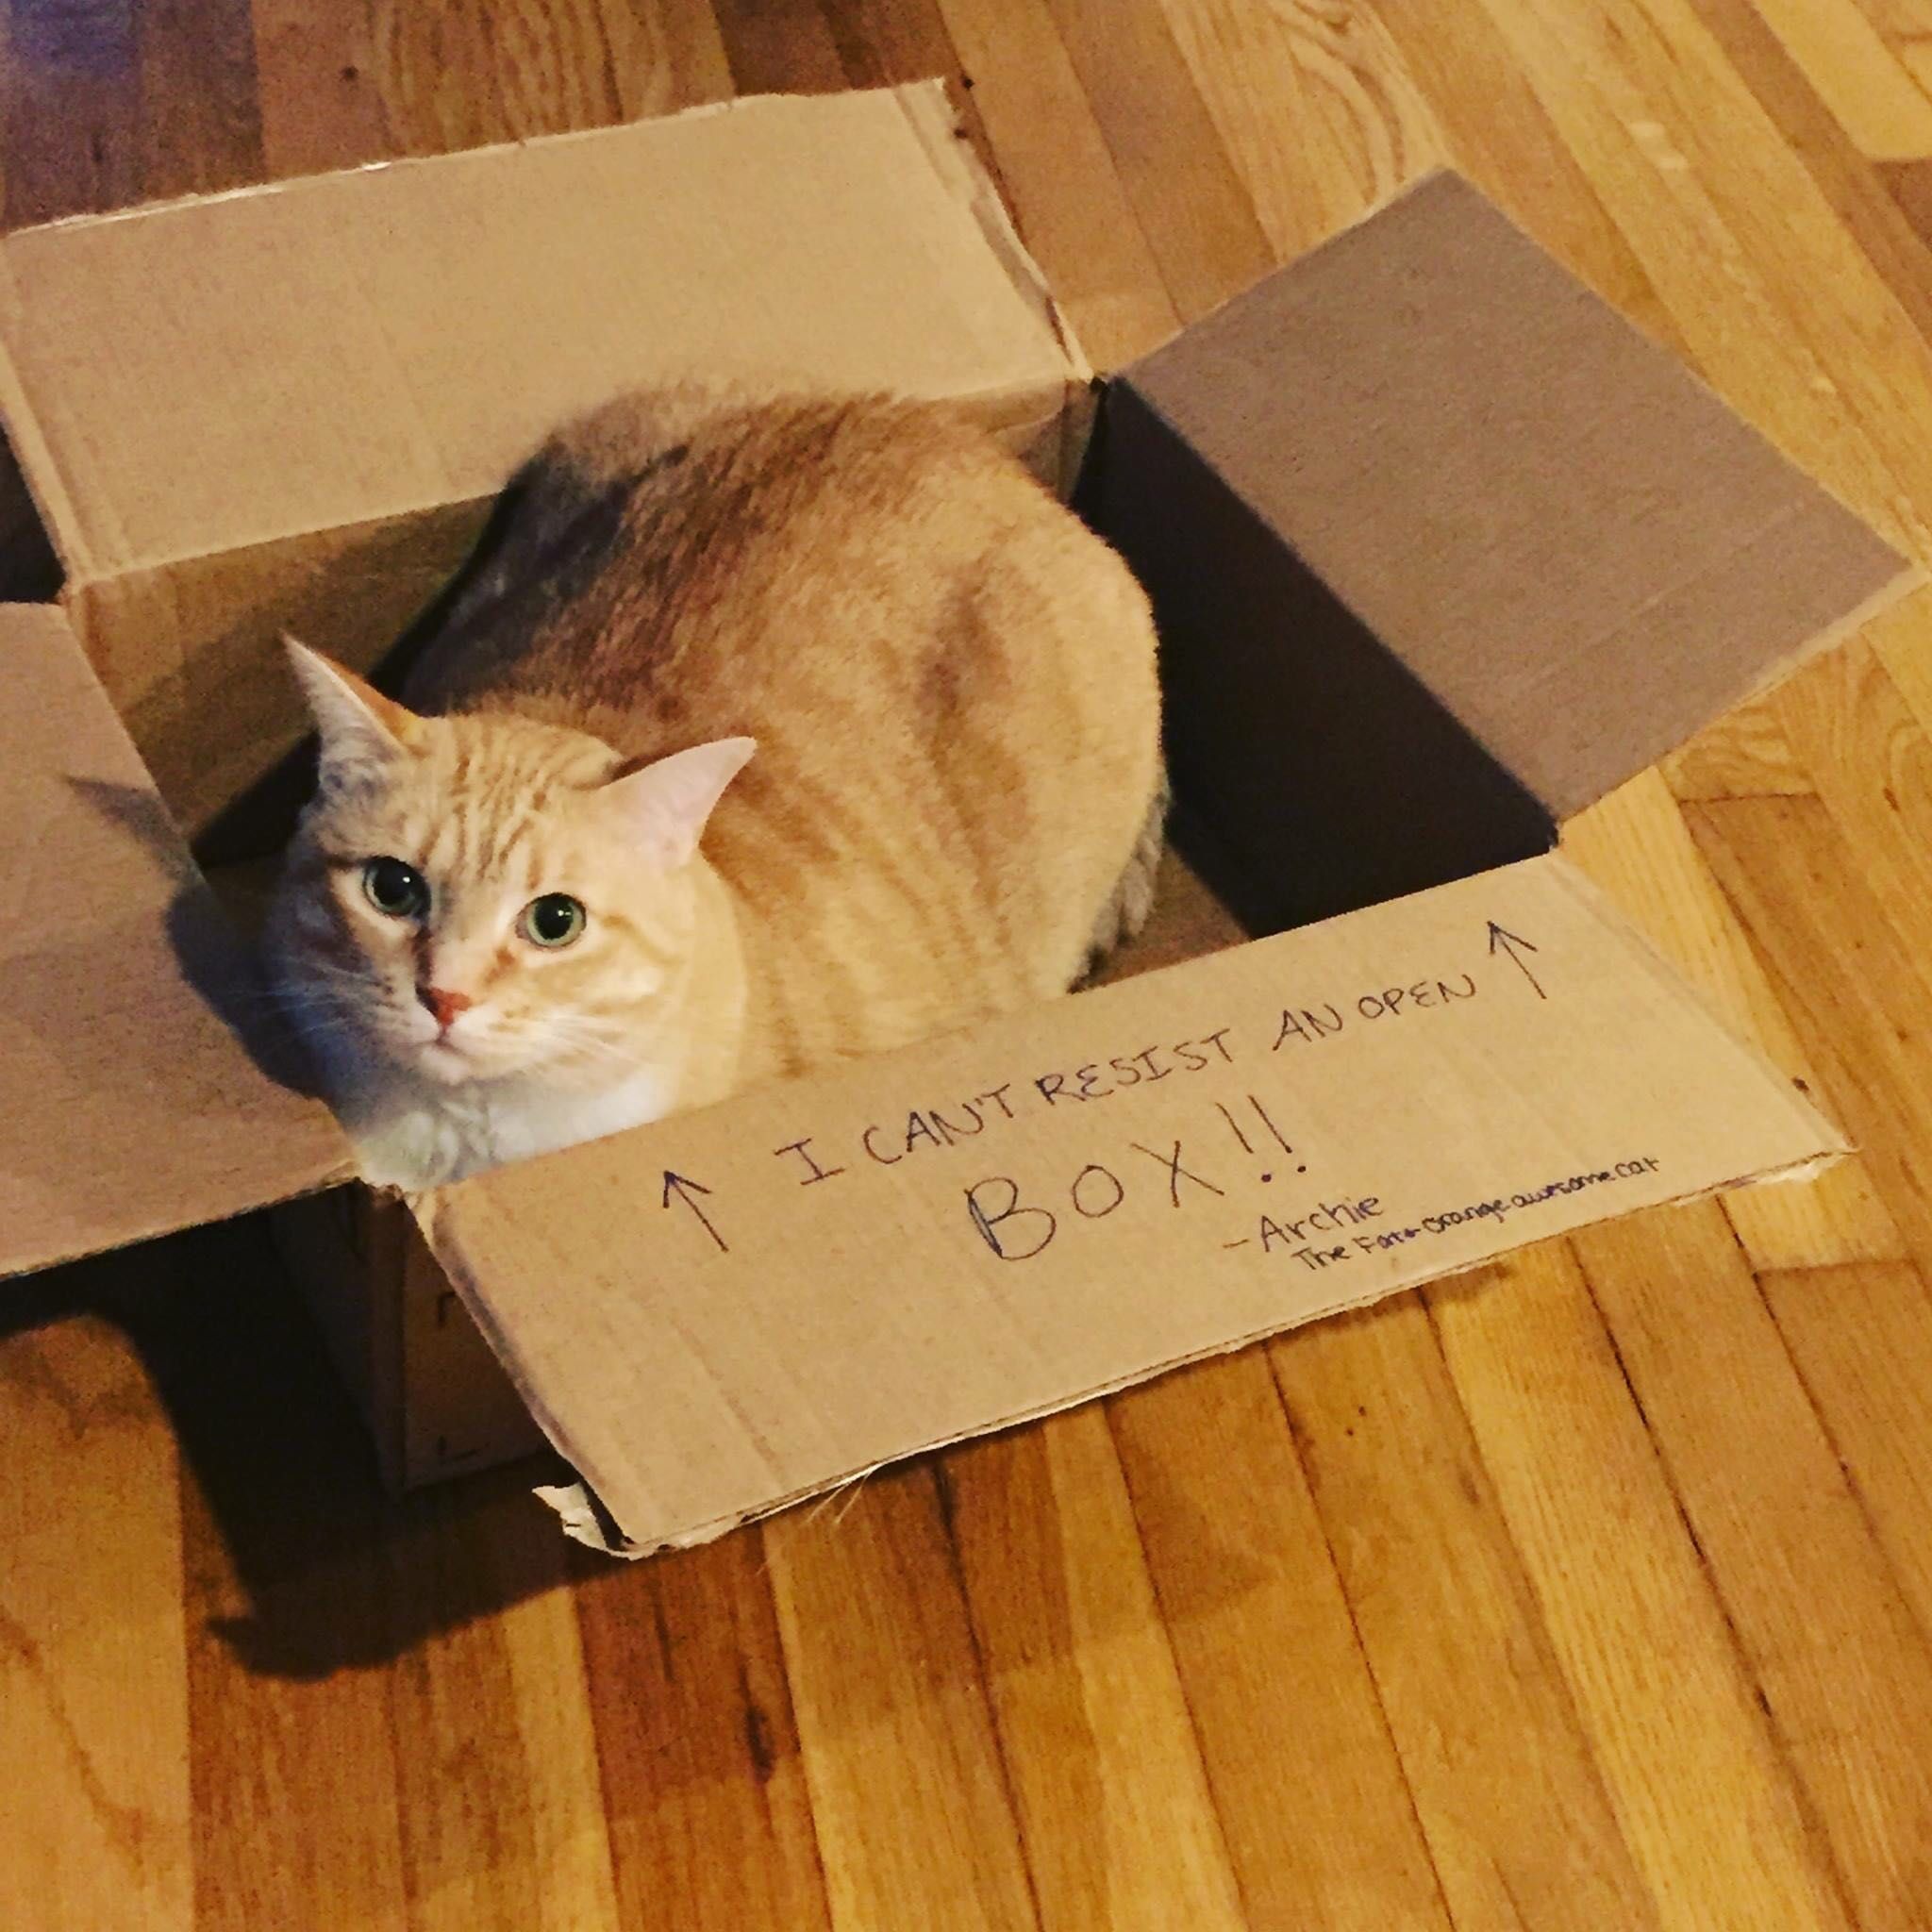 I CAN'T RESIST AN OPEN
BOX!!
-Archie
The Fat+orange awesome cat